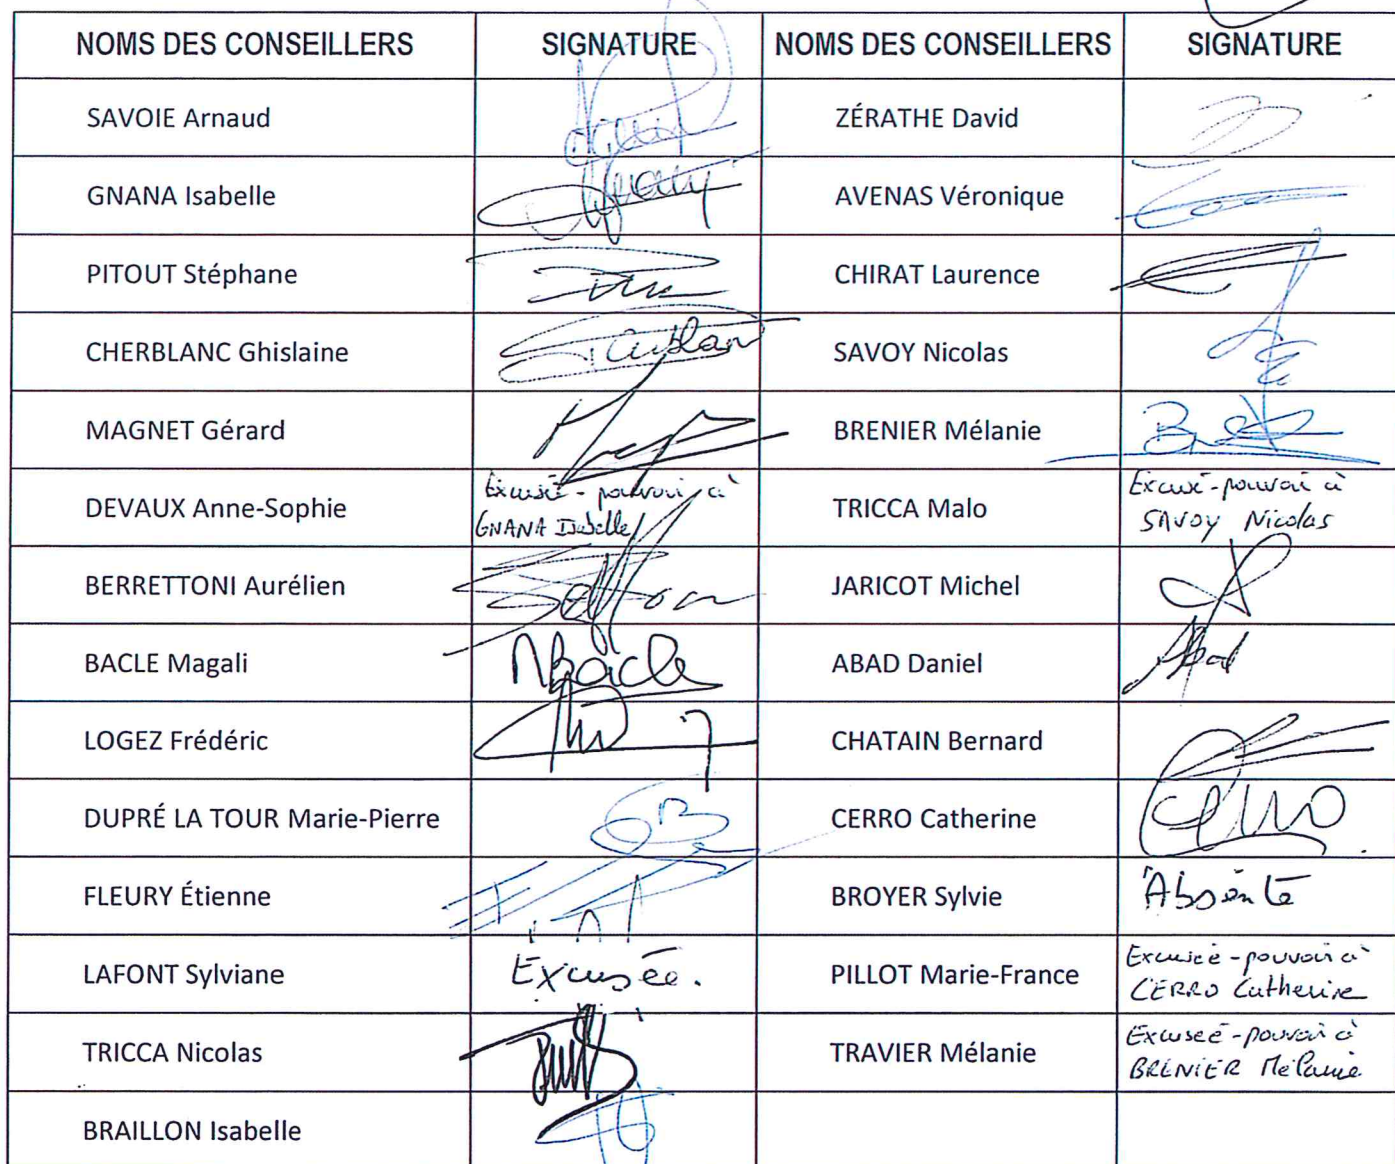 NOMS DES CONSEILLERS SIGNATURE NOMS DES CONSEILLERS SIGNATURE
SAVOIE Arnaud ZÉRATHE David
GNANA Isabelle AVENAS Véronique
PITOUT Stéphane CHIRAT Laurence
CHERBLANC Ghislaine SAVOY Nicolas
MAGNET Gérard BRENIER Mélanie
DEVAUX Anne-Sophie Excusée - pouvoir à TRICCA Malo Excusé - pouvoir à
GNANA Isabelle SAVOY Nicolas
BERRETTONI Aurélien JARICOT Michel
BACLE Magali MBacle ABAD Daniel Abad
LOGEZ Frédéric CHATAIN Bernard
DUPRÉ LA TOUR Marie-Pierre CERRO Catherine Cerro
FLEURY Étienne BROYER Sylvie Absente
LAFONT Sylviane Excusée. PILLOT Marie-France Excusée - pouvoir à
CERRO Catherine
TRICCA Nicolas TRAVIER Mélanie Excuseé - pouvoir à
BRENIER Mélanie
BRAILLON Isabelle